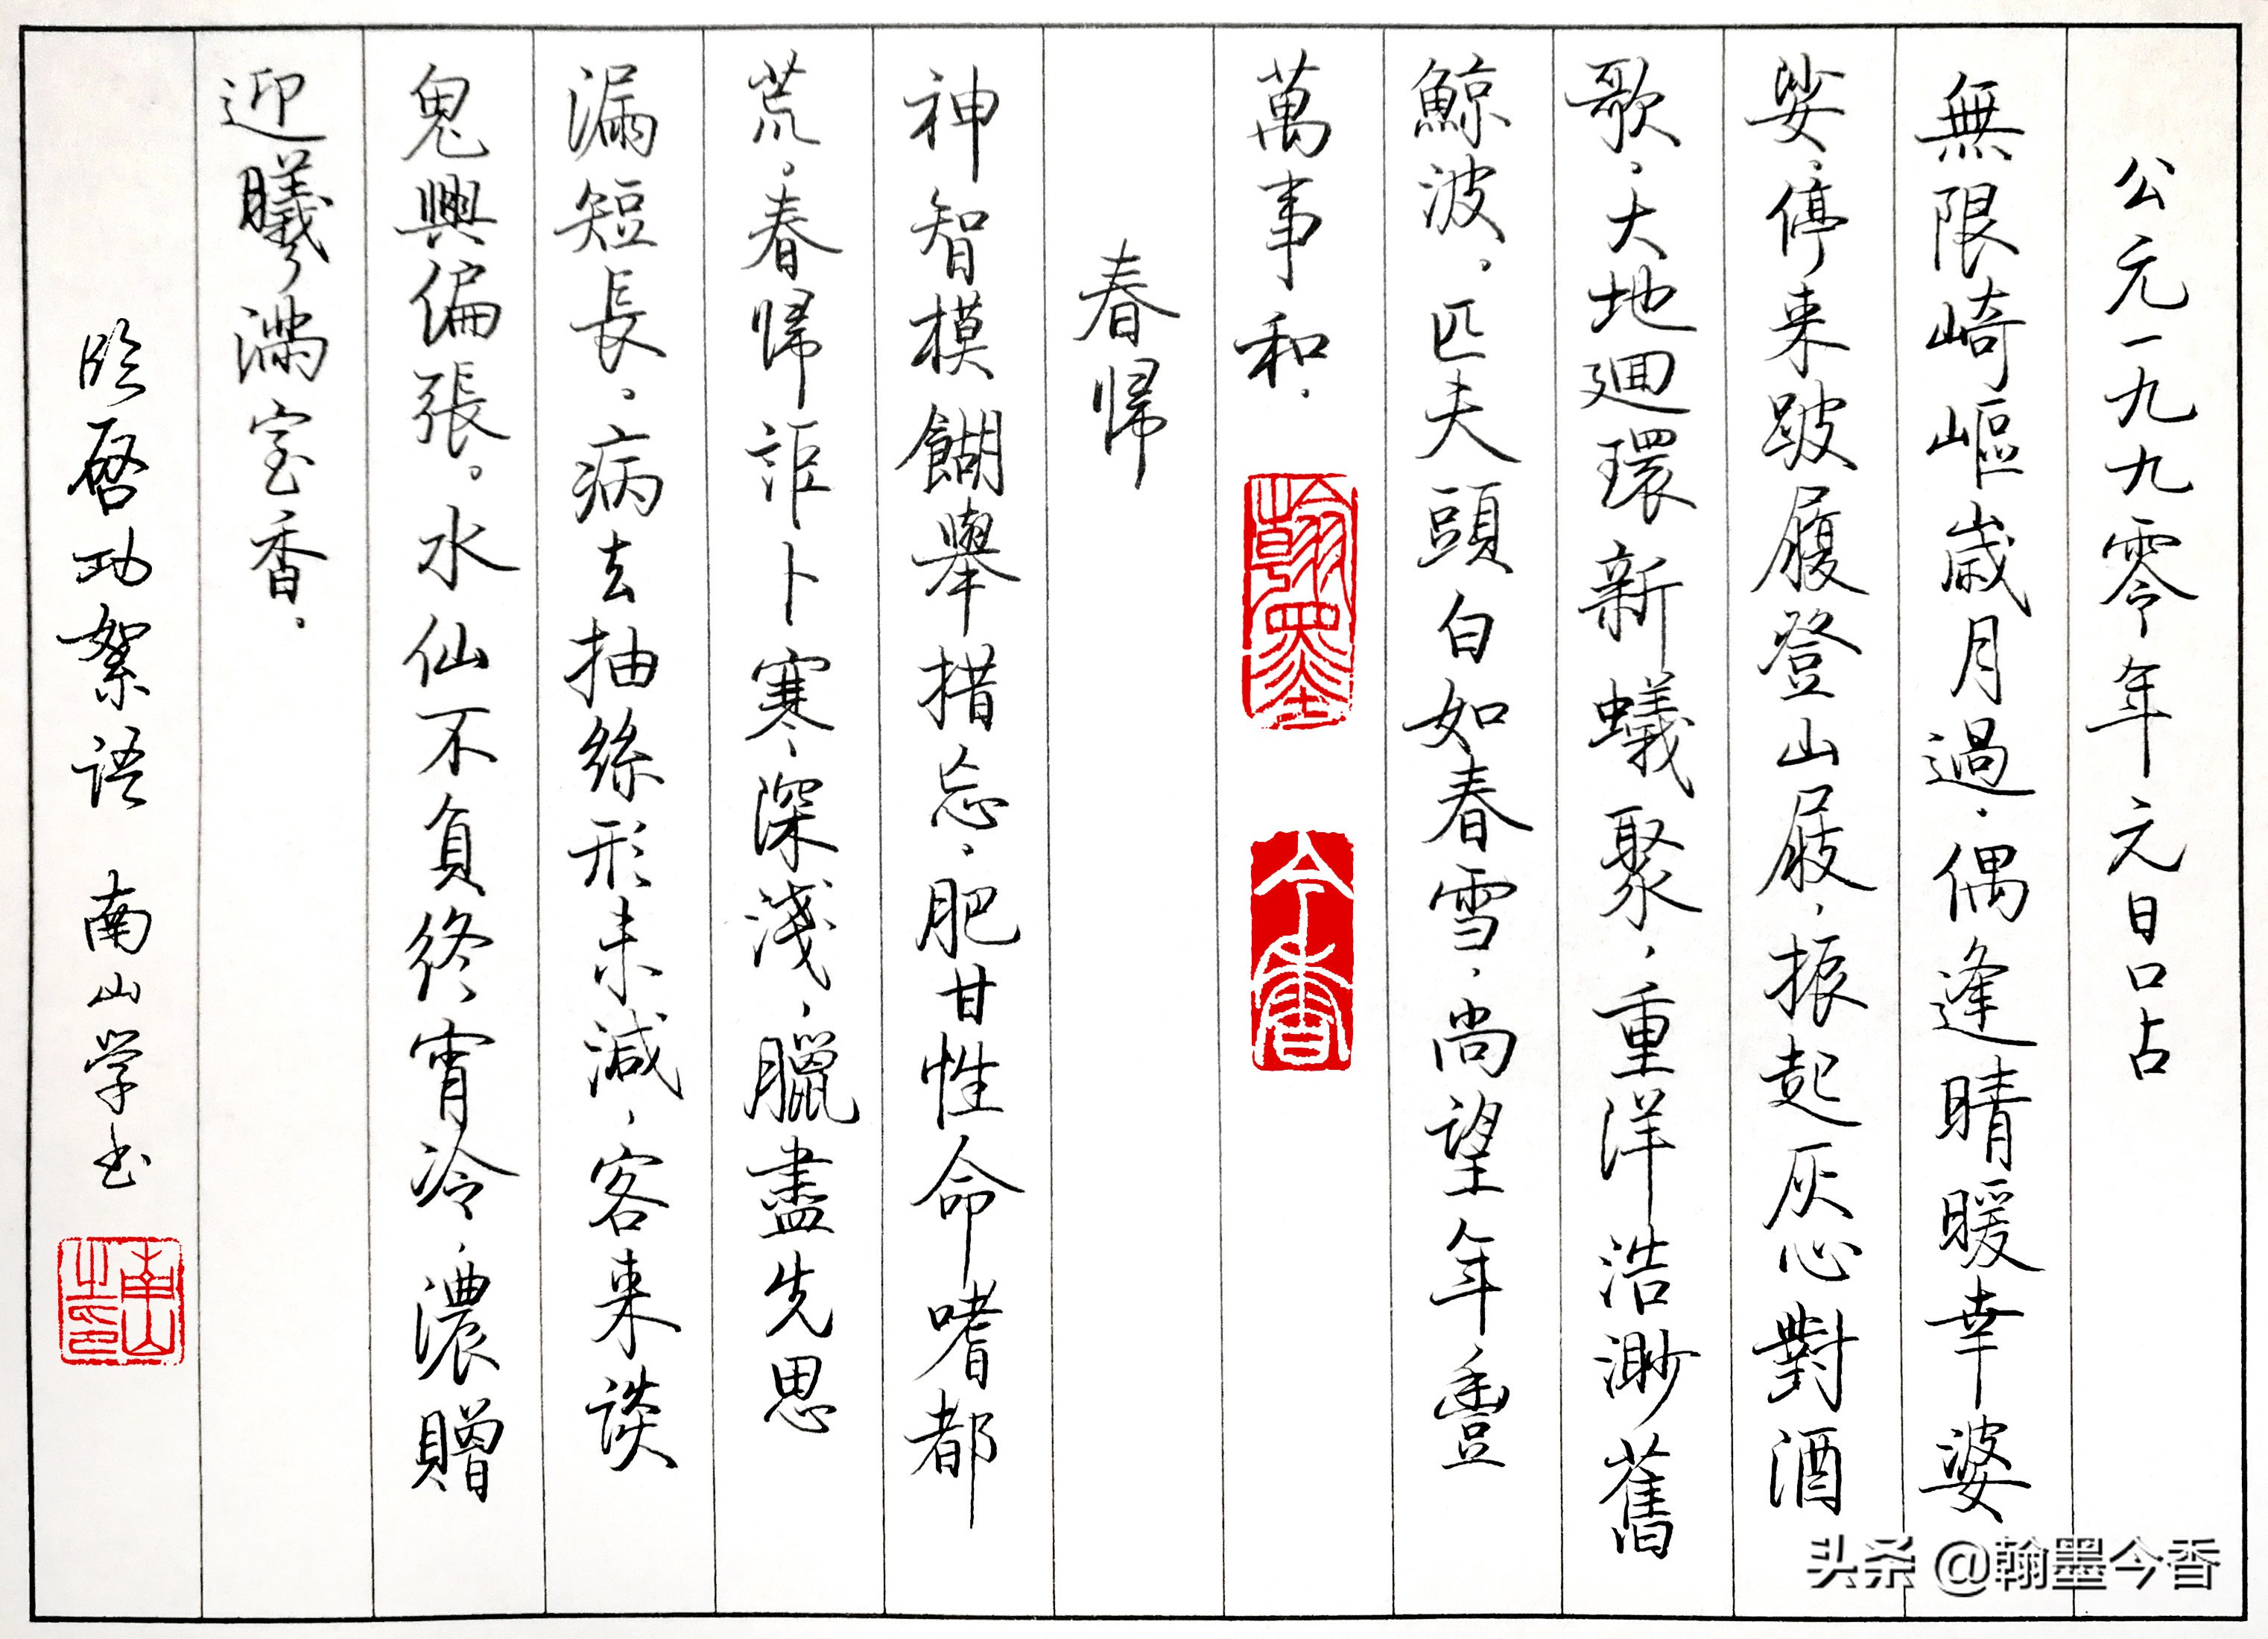 公元一九九零年元日口占
無限崎嶇歲月過。偶逢晴暖幸婆
娑。停来跛履登山屐，振起灰心對酒
歌。大地迴環新蟻聚，重洋浩渺舊
鯨波。匹夫頭白如春雪，尚望年豐
萬事和。
翰墨
今香
春帰
神智模餬舉措忘。肥甘性命嗜都
荒。春帰詎卜寒深淺，臘盡先思
漏短長。病去抽絲形未減，客来談
鬼興偏張。水仙不負終宵冷，濃贈
迎曦滿室香。
临启功絮语 南山学书
南山之印
头条 @翰墨今香